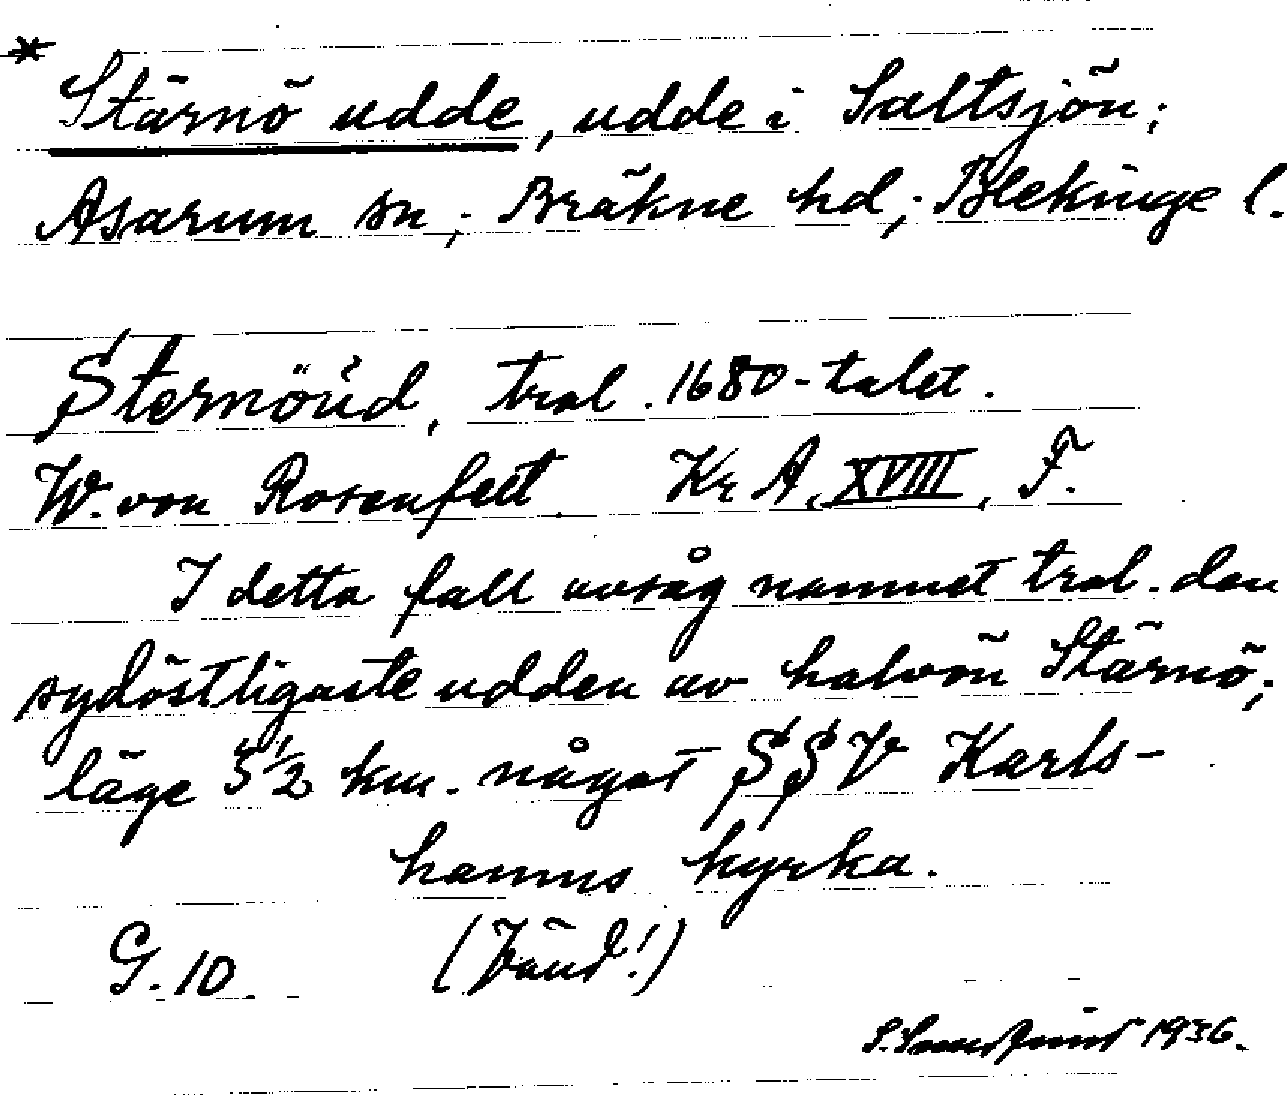 * Stärnö udde, udde i Saltsjön;
Asarum sn; Bräkne hd; Blekinge l.
Sternöúd, trol. 1680-talet.
W. von Rosenfelt. Kr A, XVIII, F.
I detta fall avsåg namnet trol. den
sydöstligaste udden av halvön Stärnö;
läge 5½ km. något SSV Karls-
hamns kyrka.
G. 10. (Vänd!)
1936.